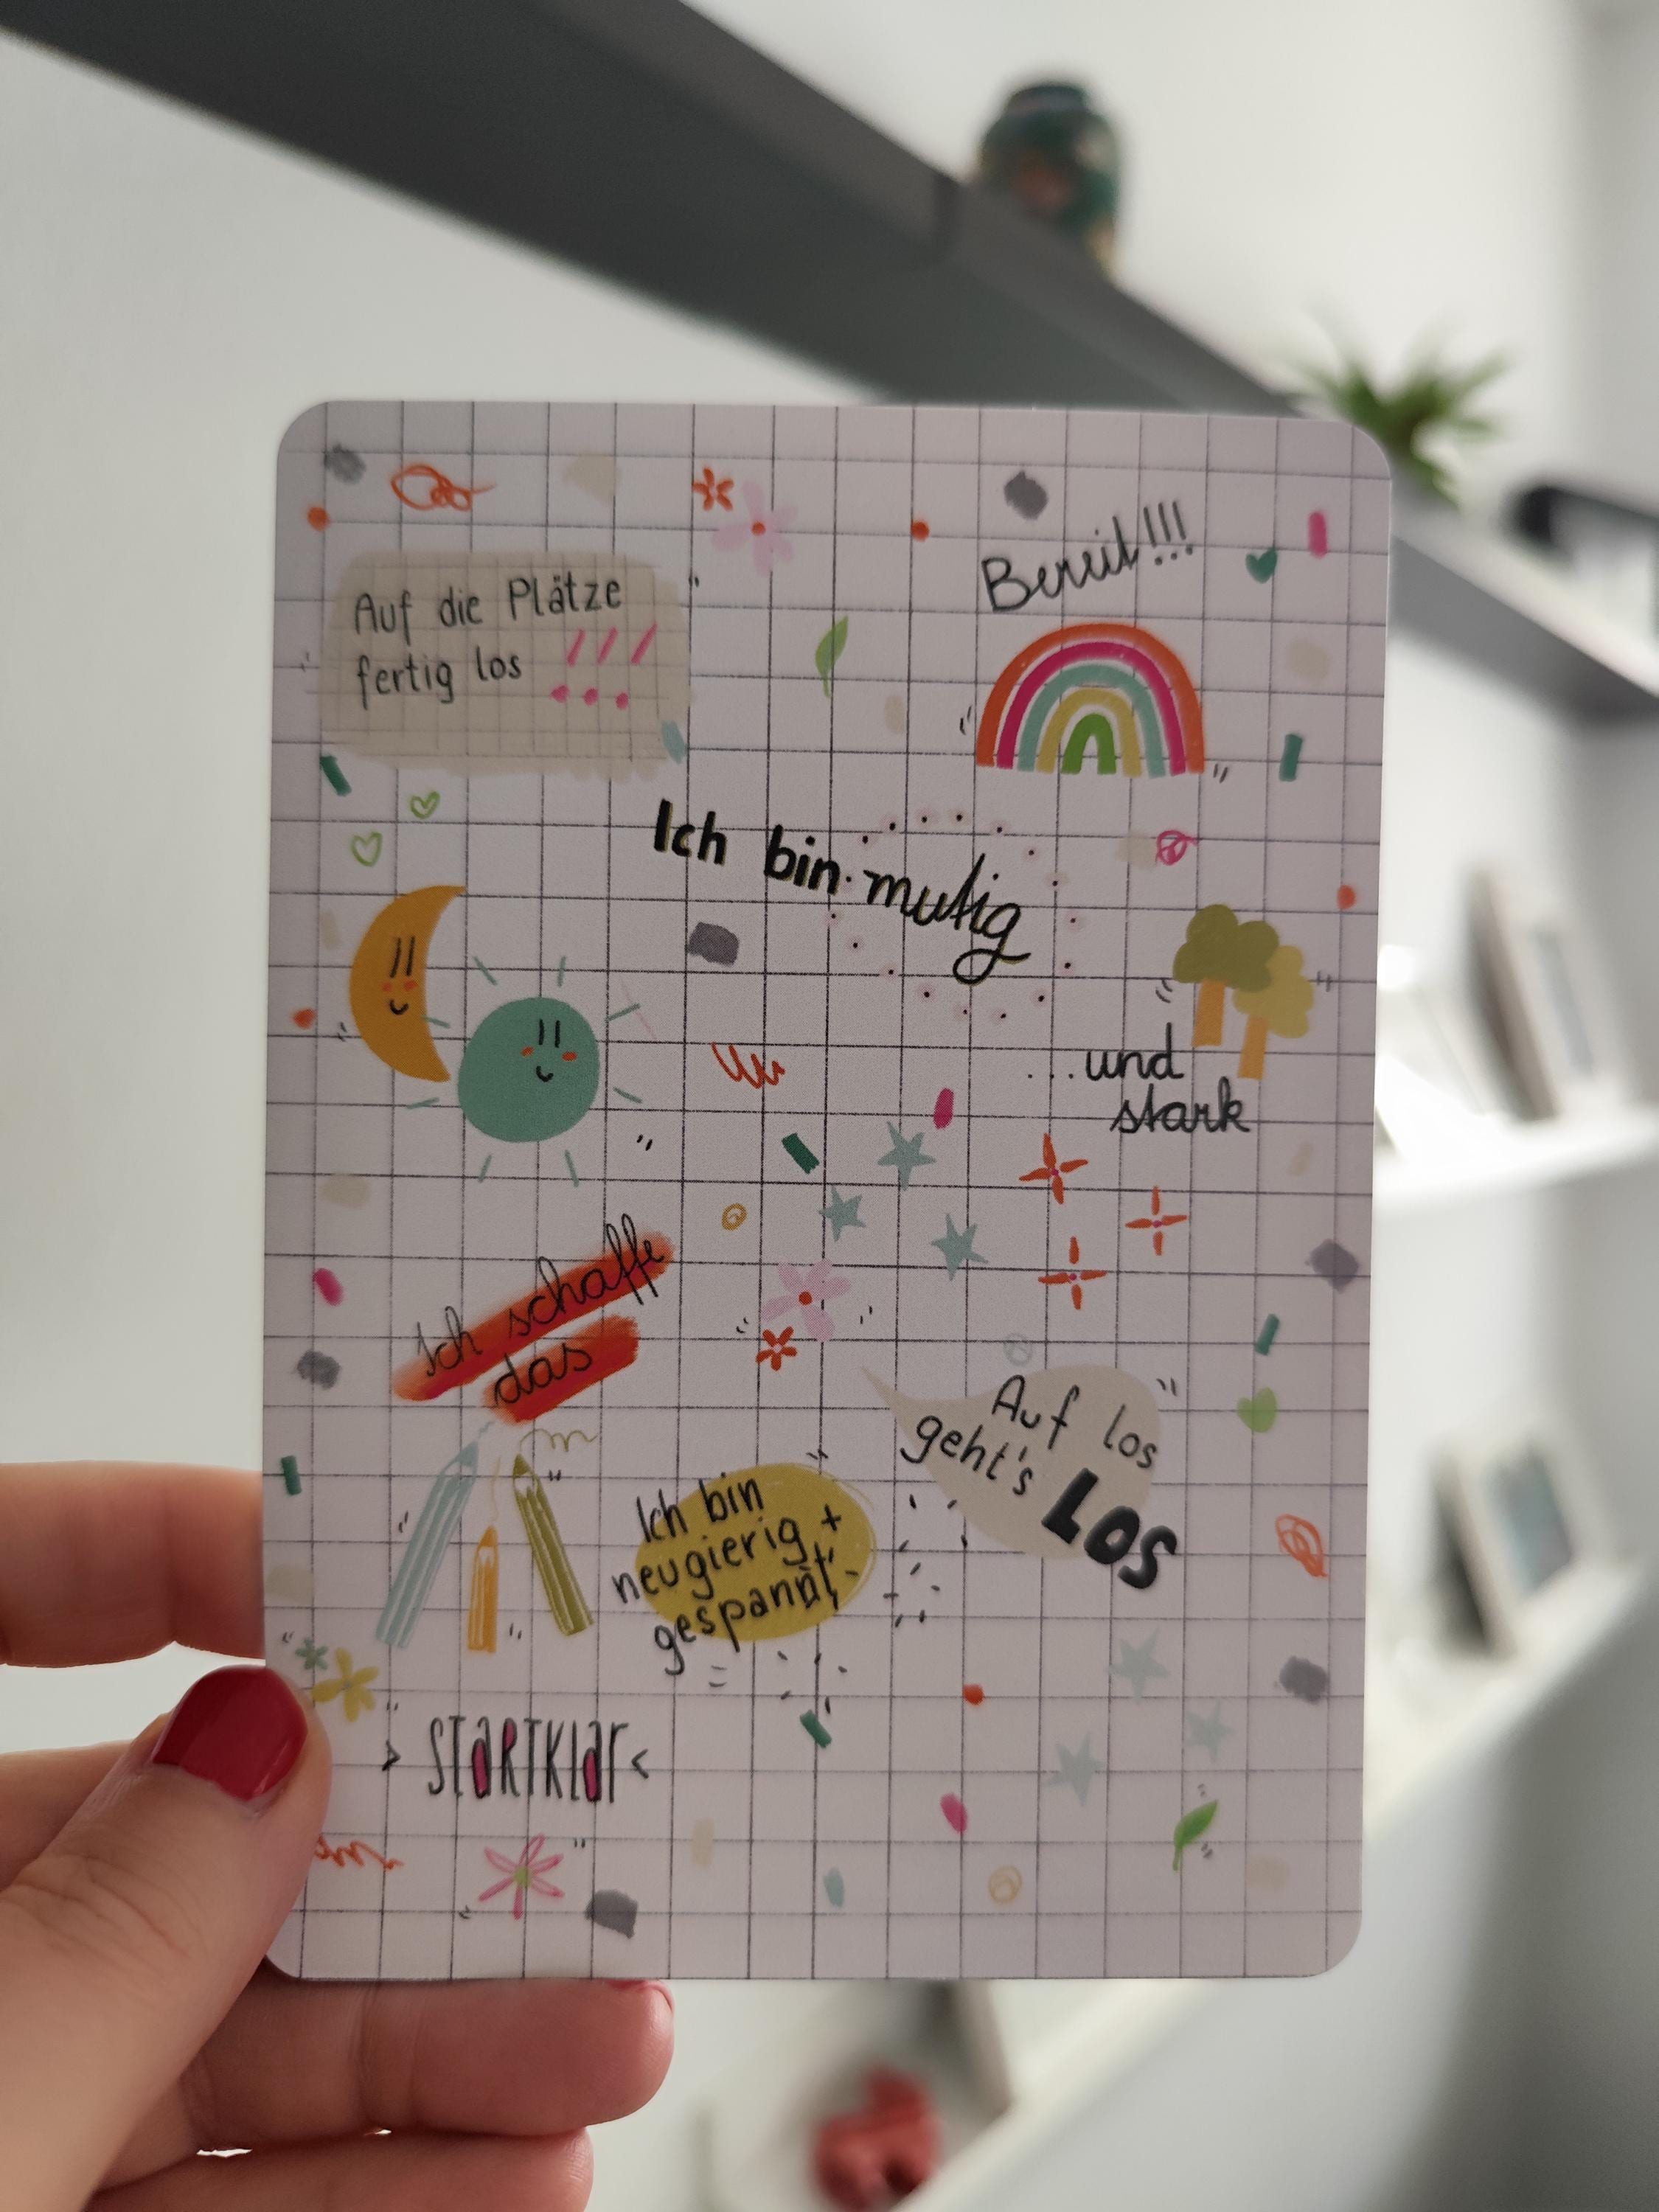 Auf die Plätze
fertig los !!!
Bereit!!!
Ich bin mutig
...und
stark
Ich schaffe
das
Auf los
geht's LOS
Ich bin
neugierig +
gespannt
> STaRTKlar <